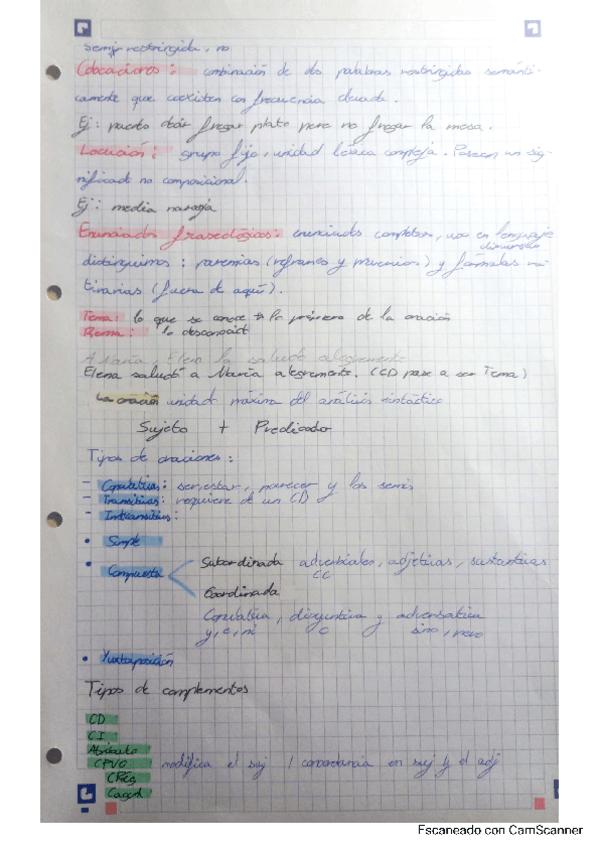 semi restringida, no
Colocaciones: combinación de dos palabras restringidas semánti-
camente que coexisten con frecuencia elevada.
Ej: puedo decir fregar plato pero no fregar la mesa.
Locución: grupo fijo, unidad léxica compleja. Poseen un sig-
nificado no composicional.
Ej: media naranja
Enunciados fraseológicos: enunciados completos, uso en lenguaje
distinguimos: paremias (refranes y proverbios) y fórmulas ru-
tinarias (fuera de aquí).
Tema: lo que se conoce lo primero de la oración
Rema: lo desconocido
A María, Elena la saludó alegremente
Elena saludó a María alegremente. (CD pasa a ser Tema)
La oración unidad máxima del análisis sintáctico
Sujeto + Predicado
Tipos de oraciones:
- Copulativas: ser, estar, parecer y los semis
- Transitivas: requiere de un CD
- Intransitivas:
• Simple
• Compuesta
Subordinada adverbiales, adjetivas, sustantivas
CC
Coordinada
Copulativa, disyuntiva y adversativa
y, e, ni o sino, pero
• Yuxtaposición
Tipos de complementos
CD
CI
Atributo
CPVO modifica el suj / concordancia en suj y el adj
CReg
Cagent
Escaneado con CamScanner